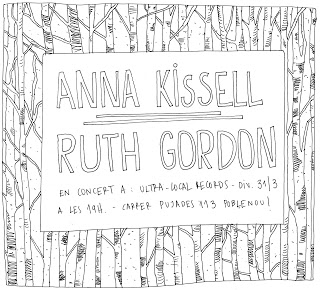 ANNA KiSSELL
RUTH GORDON
EN CONCERT A: ULTRA-LOCAL RECORDS - DIV. 31/3
A LES 19H. - CARRER PUJADES 113 POBLENOU!